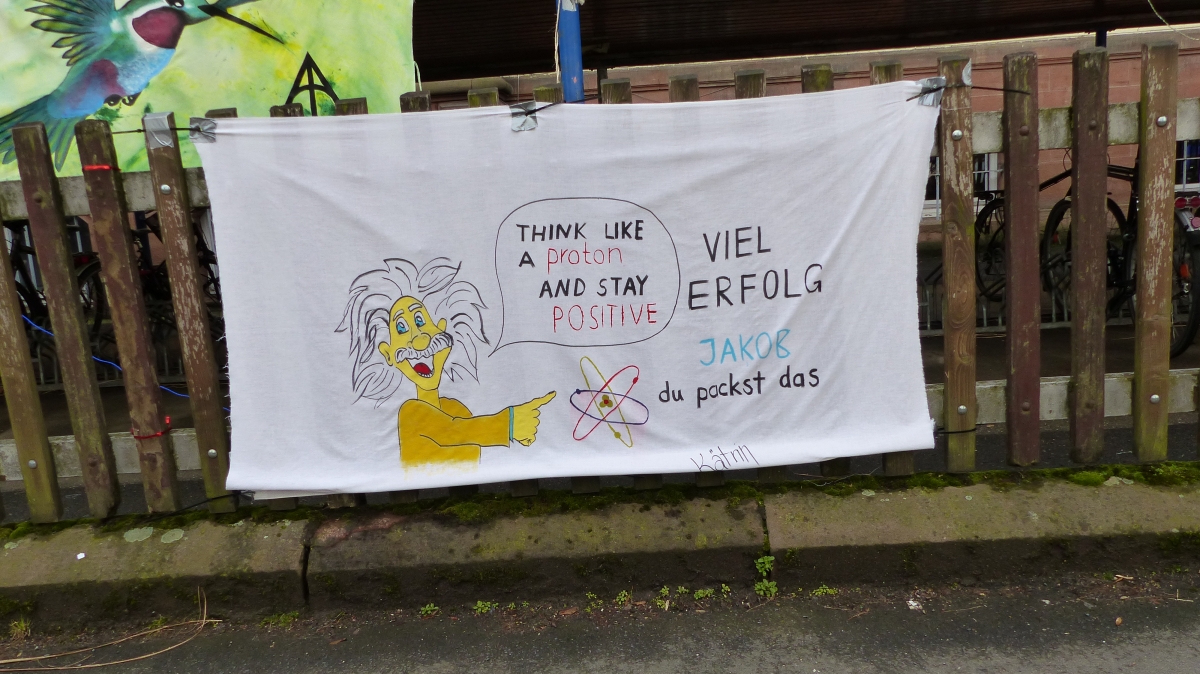 THINK LIKE
A proton
AND STAY
POSITIVE
VIEL
ERFOLG
JAKOB
du packst das
Kätrin